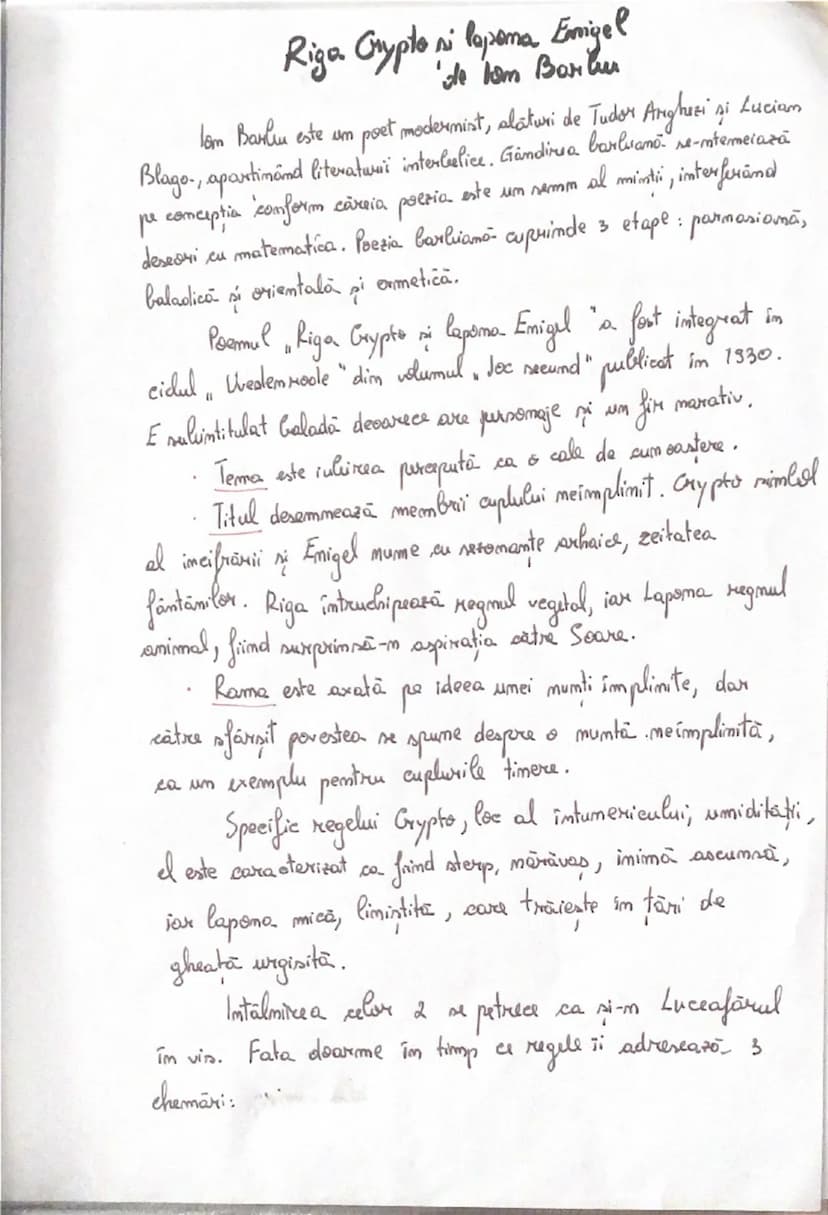 Riga Crypto și lapona Enigel
de Ion Barbu
Ion Barbu este un poet modernist, alături de Tudor Arghezi și Lucian
Blaga, aparținând literaturii interbelice. Gândirea barbiană se-ntemeiază
pe concepția conform căreia poezia este un semn al minții, interferând
deseori cu matematica. Poezia barbiană cuprinde 3 etape: parnasiană,
baladică și orientală și ermetică.
Poemul „Riga Crypto și lapona Enigel" a fost integrat în
ciclul „Uvedenrode" din volumul „Joc secund" publicat în 1930.
E subintitulat Baladă deoarece are personaje și un fir narativ.
· Tema este iubirea percepută ca o cale de cunoaștere.
· Titul desemnează membrii cuplului neîmplinit. Crypto simbol
al incifrării și Enigel nume cu rezonanțe arhaice, zeitatea
fântânilor. Riga întruchipează regnul vegetal, iar Lapona regnul
animal, fiind surprinsă-n aspirația către Soare.
· Rama este axată pe ideea unei nunți împlinite, dar
către sfârșit povestea se spune despre o nuntă neîmplinită,
ca un exemplu pentru cuplurile tinere.
Specific regelui Crypto, loc al întunericului, umidității,
el este caracterizat ca fiind sterp, nărăvaș, inimă ascunsă,
iar lapona mică, liniștită, care trăiește în țări de
gheață urgisită.
Intâlnirea celor 2 se petrece ca și-n Luceafărul
în vis. Fata doarme în timp ce regele îi adresează 3
chemări: